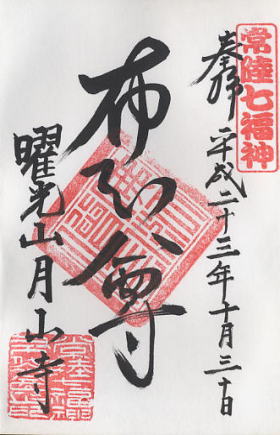 常陸七福神
奉拝 平成二十三年十月三十日
布袋尊
曜光山月山寺